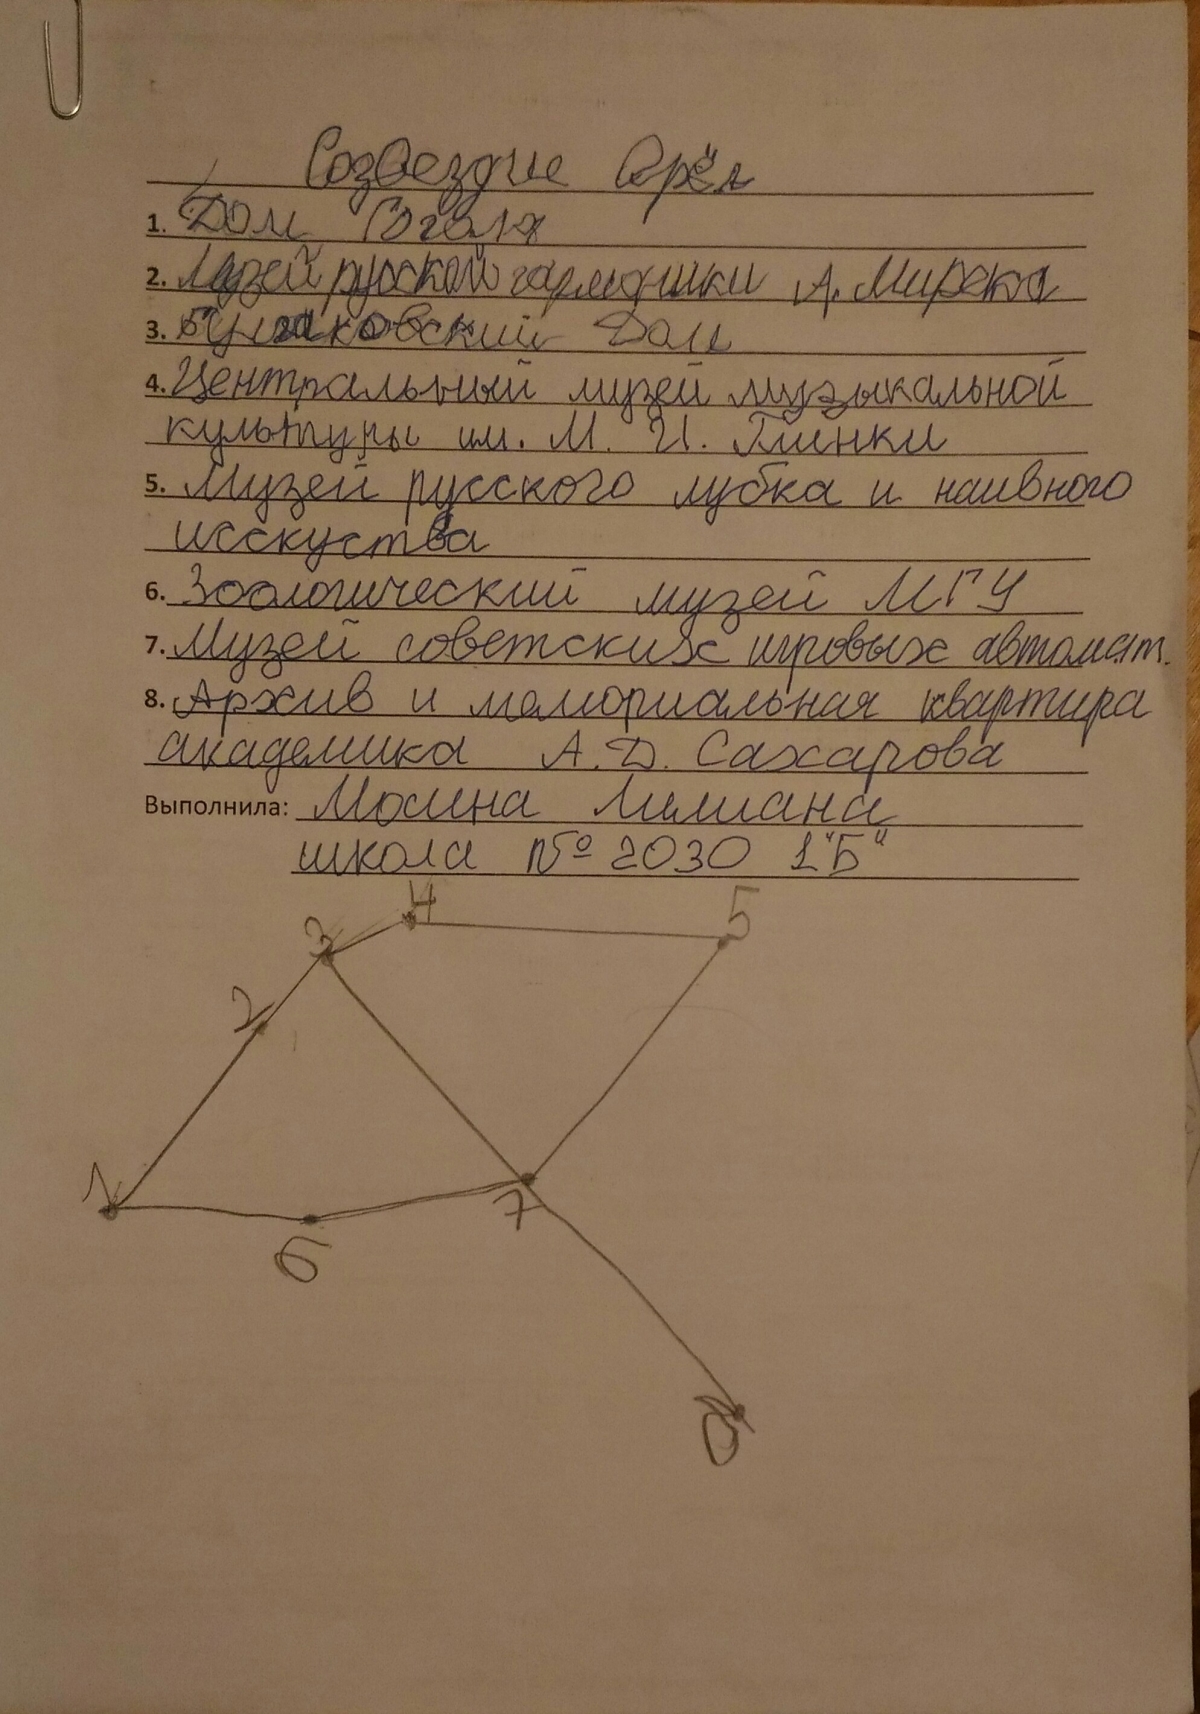 Созвездие Орёл
1. Дом Гоголя
2. Музей русской гармоники А. Мирека
3. Булгаковский Дом
4. Центральный музей музыкальной
культуры им. М. И. Глинки
5. Музей русского лубка и наивного
исскуства
6. Зоологический музей МГУ
7. Музей советских игровых автомат.
8. Архив и мемориальная квартира
академика А. Д. Сахарова
Выполнила: Молина Лилиана
школа № 2030 1 "Б"
4
5
3
2
1
7
6
8